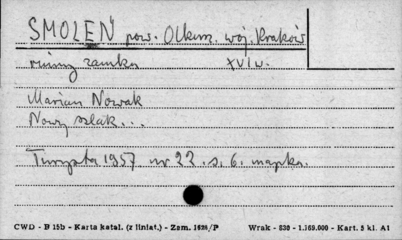 SMOLEŃ pow. Olkusz. woj. Kraków
ruiny zamku XVI w.
Marian Nowak
Nowy szlak...
Turysta 1957 nr 22. s. 6. mapka.
CWD - B 15b - Karta katal. (z liniat.) - Zam. 1626/P Wrak - 830 - 1.169.000 - Kart. 3 kl. A1